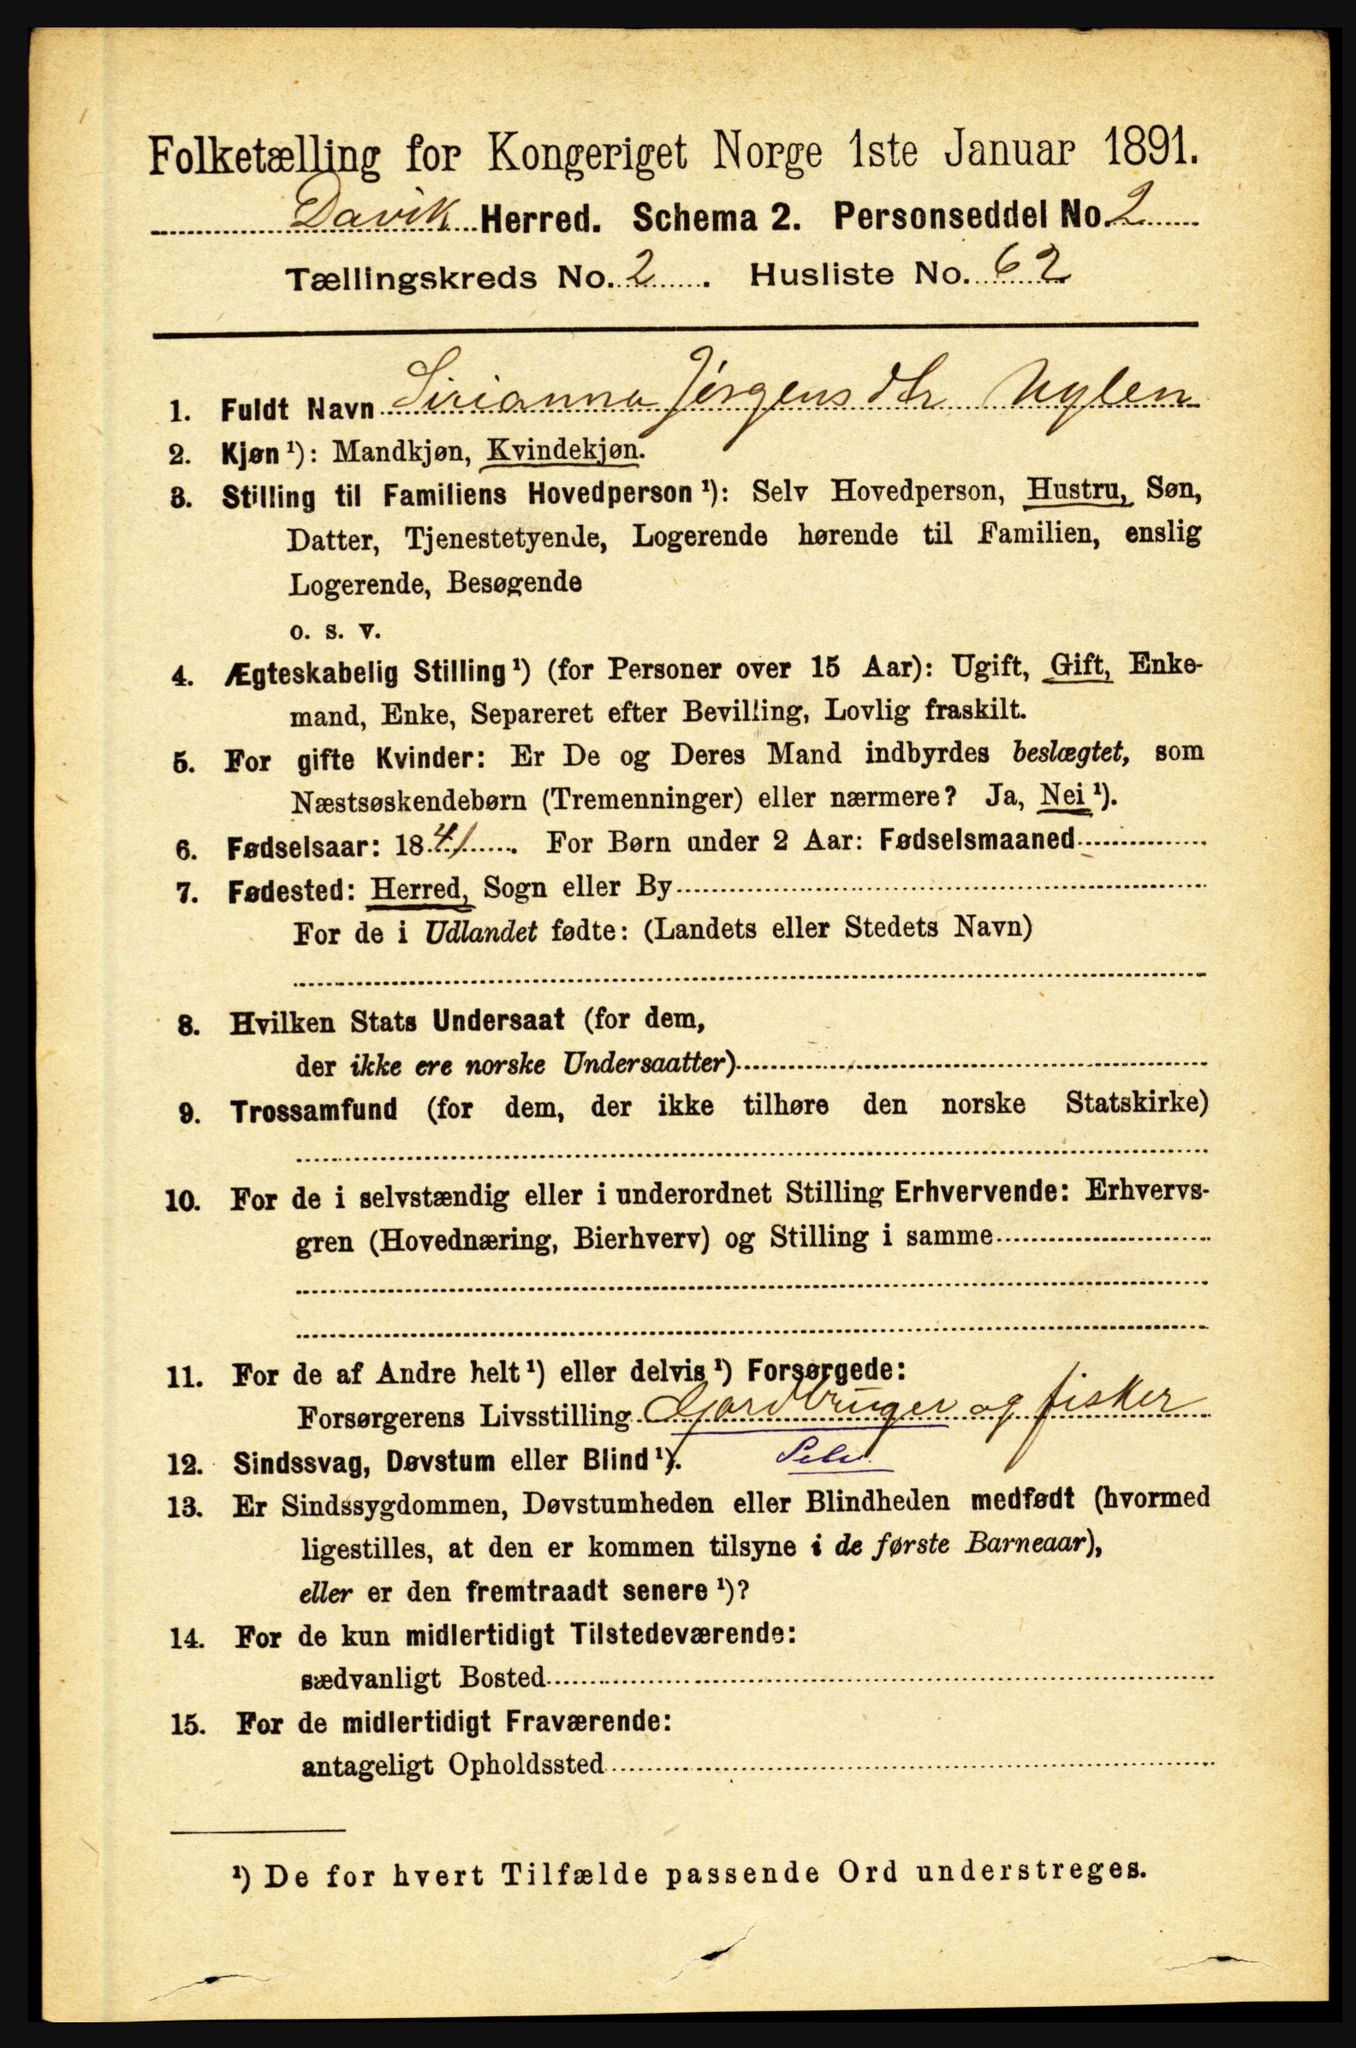 Folketælling for Kongeriget Norge 1ste Januar 1891.
Davik Herred. Schema 2. Personseddel No. 2
Tællingskreds No. 2. Husliste No. 62
1. Fuldt Navn Sirianna Jørgensdtr Nylen
2. Kjøn ¹): Mandkjøn, Kvindekjøn.
3. Stilling til Familiens Hovedperson ¹): Selv Hovedperson, Hustru, Søn,
Datter, Tjenestetyende, Logerende hørende til Familien, enslig
Logerende, Besøgende
o. s. v.
4. Ægteskabelig Stilling ¹) (for Personer over 15 Aar): Ugift, Gift, Enke-
mand, Enke, Separeret efter Bevilling, Lovlig fraskilt.
5. For gifte Kvinder: Er De og Deres Mand indbyrdes beslægtet, som
Næstsøskendebørn (Tremenninger) eller nærmere? Ja, Nei ¹).
6. Fødselsaar: 1841. For Børn under 2 Aar: Fødselsmaaned
7. Fødested: Herred, Sogn eller By
For de i Udlandet fødte: (Landets eller Stedets Navn)
8. Hvilken Stats Undersaat (for dem,
der ikke ere norske Undersaatter)
9. Trossamfund (for dem, der ikke tilhøre den norske Statskirke)
10. For de i selvstændig eller i underordnet Stilling Erhvervende: Erhvervs-
gren (Hovednæring, Bierhverv) og Stilling i samme
11. For de af Andre helt ¹) eller delvis ¹) Forsørgede:
Forsørgerens Livsstilling Gardbruger og fisker
12. Sindssvag, Døvstum eller Blind ¹). Selv
13. Er Sindssygdommen, Døvstumheden eller Blindheden medfødt (hvormed
ligestilles, at den er kommen tilsyne i de første Barneaar),
eller er den fremtraadt senere ¹)?
14. For de kun midlertidigt Tilstedeværende:
sædvanligt Bosted
15. For de midlertidigt Fraværende:
antageligt Opholdssted
¹) De for hvert Tilfælde passende Ord understreges.